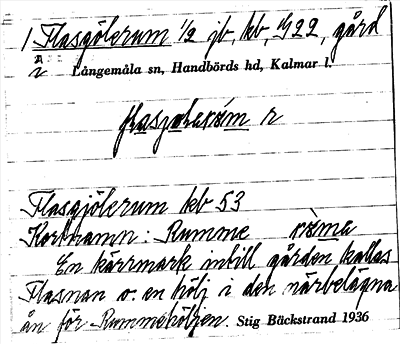 1 Flasgölerum 1/2 jb, kb, 1/1922, gård
i Långemåla sn, Handbörds hd, Kalmar l.
Flasgjölerum kb 53
Kortnamn: Rumme
En kärrmark intill gården kallas
Flasnan o. en hölj i den närbelägna
ån för Rummehöljen. Stig Bäckstrand 1936